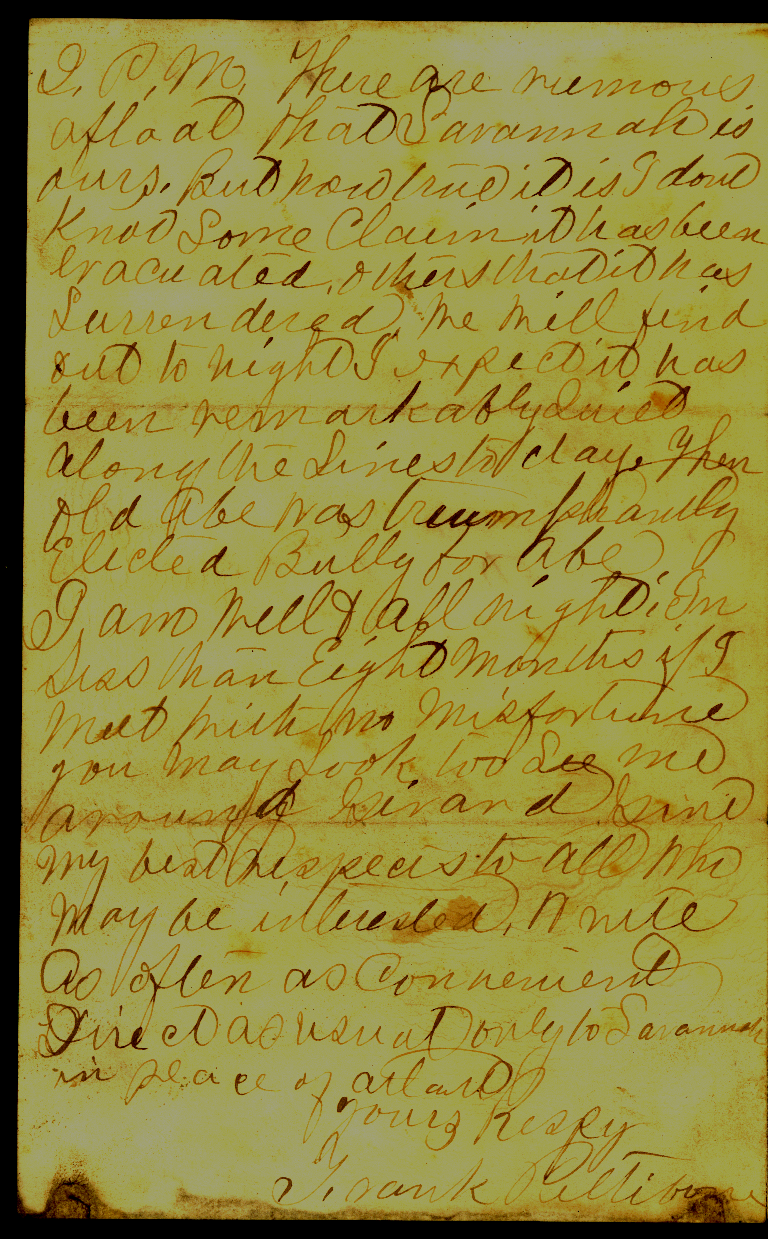 I. P. M. There are rumors
afloat that Savannah is
ours. But how true it is I dont
Know Some Claim it has been
evacuated, others that it has
Surrendered, We Will find
out to night I expect it has
been remarkably Quiet
along the Lines to day. Then
old Abe was triumphantly
Elected Bully for Abe
I am Well & all right. In
Less than Eight Months if I
Meet with no Misfortune
you may Look too See me
around Girard Give
my best respects to all who
May be interested. Write
As often as Convenient
Direct as usual only to Savannah
in place of atlant
yours Respy
Frank Pettibone